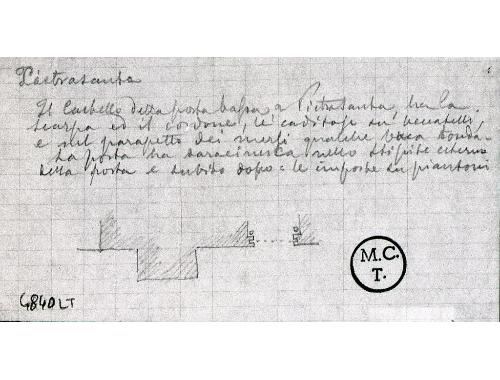 Pietrasanta
Il Castello della porta bassa a Pietrasanta ha la
scarpa ed il cordone, le caditoje su beccatelli,
e nel parapetto dei merli qualche buca tonda.
La porta ha saracinesca nello stipite esterno
della porta e subito dopo = le imposte su piantoni
M.C.
T.
4840LT